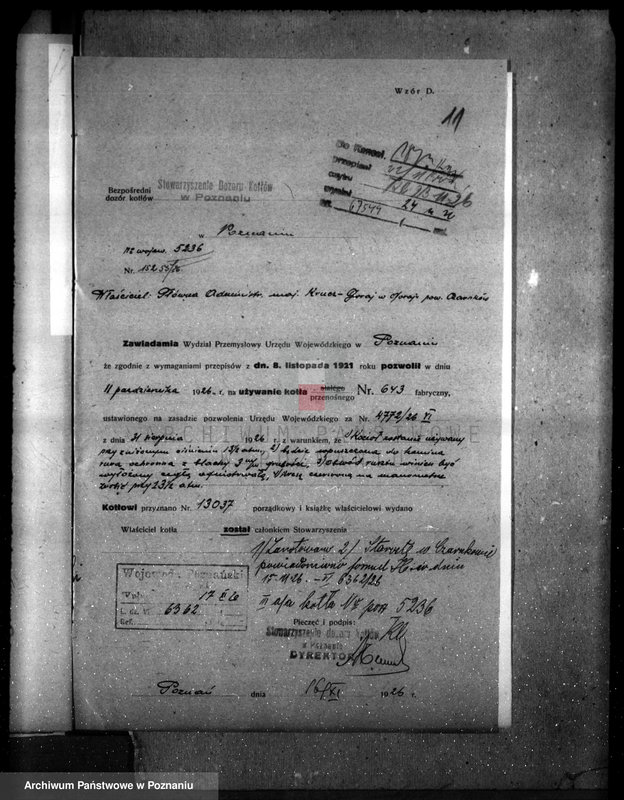 Wzór D.
11
Do Kancel.
przepisał
czytał
wysłał 24 XI
Nr. 67544
Bezpośredni
dozór kotłów
Stowarzyszenie Dozoru Kotłów
w Poznaniu
w Poznaniu
Nr wojew. 5236
Nr. 15255/26
Właściciel: Główna Administr. maj. Krucz-Goraj w Goraju pow. Czarnków
Zawiadamia Wydział Przemysłowy Urzędu Wojewódzkiego w Poznaniu
że zgodnie z wymaganiami przepisów z dn. 8. listopada 1921 roku pozwolił w dniu
11 października 1926 r. na używanie kotła stałego przenośnego Nr. 643 fabryczny,
ustawionego na zasadzie pozwolenia Urzędu Wojewódzkiego za Nr. 4772/26 VI
z dnia 31 sierpnia 1926 r. z warunkiem, że 1) Kocioł zostanie używany
przy zniżonym ciśnieniu 13½ atm, 2) będzie wpuszczona do komina
rura ochronna z blachy 3 m/m grubości, 3) obwód rusztu winien być
wyłożony cegłą ogniotrwałą, 4) kresę czerwoną na manometrze
zrobić przy 13½ atm.
Kotłowi przyznano Nr. 13037 porządkowy i książkę właścicielowi wydano
Właściciel kotła został członkiem Stowarzyszenia
1/ Zanotowano 2/ Starostę w Czarnkowie
powiadomiono formul. H. w dniu
15.11.26. – VI 6362/26
III a/a kotła Nr 5236
Wojewod. Poznański
Wpł. 17 XI 26
L. dz. VI 6362
Ref.
Pieczęć i podpis:
Stowarzyszenie dozoru kotłów
w Poznaniu
DYREKTOR
Poznań dnia 16/XI 1926 r.
ARCHIWUM PAŃSTWOWE
Archiwum Państwowe w Poznaniu